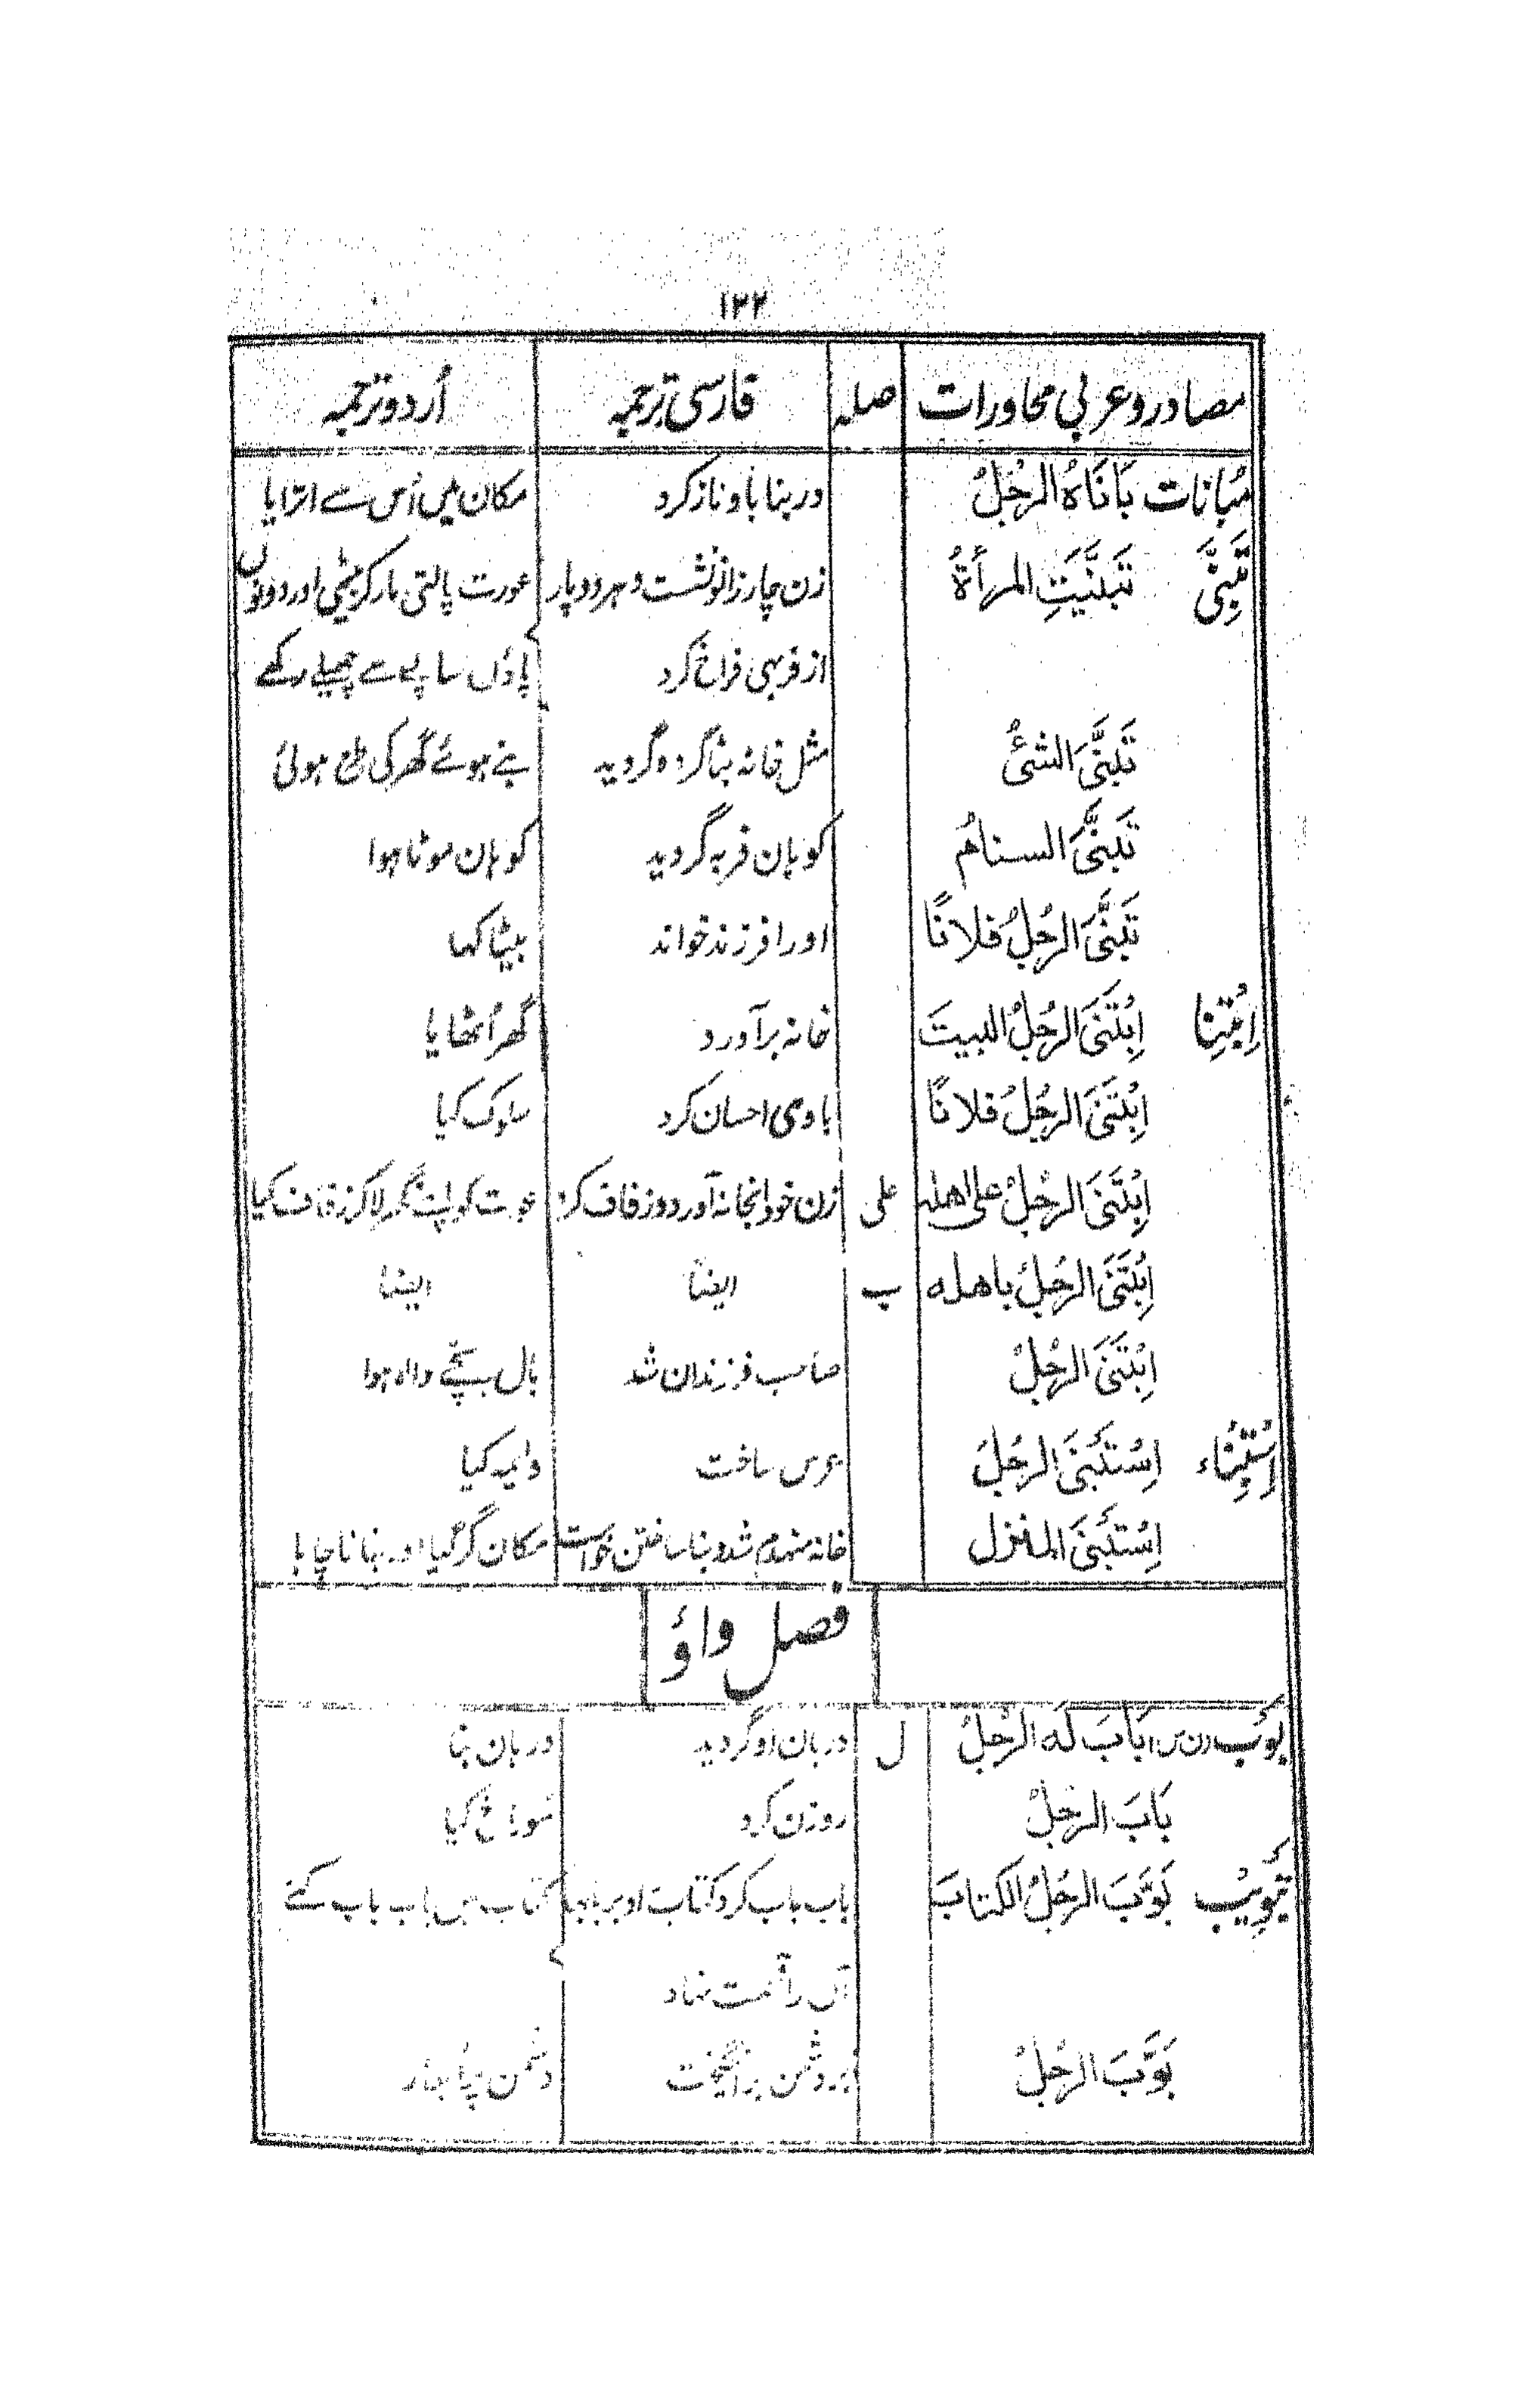 ۱۲۲
مصادر و عربی محاورات صلہ فارسی ترجمہ اُردو ترجمہ
مُبانات بَانَاہُ الرجُلُ در بنا با و ناز کرد مکان میں اُس سے اترایا
تَبَنِّی تَبَنَّیَتِ المرأۃُ زن چار زانو نشست و ہر دو پا را عورت پالتی مار کر بیٹھی اور دونوں
از فربہی فراخ کرد پاؤں ساپے سے پھیلے رکھے
تَبَنَّی الشئُ مثل خانہ بنا کردہ گردید بنے ہوئے گھر کی طرح ہوئی
تَبَنَّی السنامُ کوہان فربہ گردید کوہان موٹا ہوا
تَبَنَّی الرجُلُ فلانًا اورا فرزند خواند بیٹا کہا
اِبْتِنا اِبْتَنَی الرجُلُ البیتَ خانہ برآورد گھر اُٹھایا
اِبْتَنَی الرجُلُ فلانًا با وی احسان کرد سلوک کیا
اِبْتَنَی الرجُلُ علی اھلہ علی زن خود را بخانہ آورد و زفاف کرد عورت کو اپنے گھر لا کر زفاف کیا
اِبْتَنَی الرجُلُ باھلہ ب ایضاً ایضاً
اِبْتَنَی الرجُلُ صاحب فرزندان شد بال بچے والا ہوا
اِسْتِبْنَاء اِسْتَبْنَی الرجُلَ عرس ساخت ولیمہ کیا
اِسْتَبْنَی المنزل خانہ منہدم شد و بنا ساختن خواست مکان گر گیا اور بنانا چاہا
فصل واؤ
بَوْب (ن س) بَابَ لَہ الرجُلُ ل دربان او گردید دربان بنا
بَابَ الرجُلُ روزن کرد سوراخ کیا
تَبْوِیْب بَوَّبَ الرجُلُ الکتابَ باب باب کرد کتاب او کتاب میں باب باب کئے
آں را نہاد
بَوَّبَ الرجُلُ بر دشمن برانگیخت دشمن پر اُبھارا